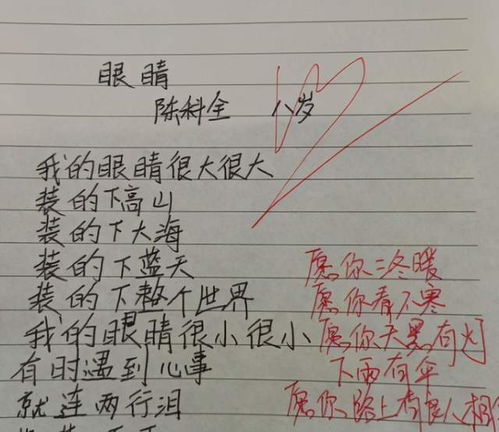 眼睛
陈科全 八岁
我的眼睛很大很大
装的下高山
装的下大海
装的下蓝天
愿你三冬暖
装的下整个世界
愿你春不寒
我的眼睛很小很小
愿你天黑有灯
有时遇到心事
下雨有伞
就连两行泪
愿你路上有良人相